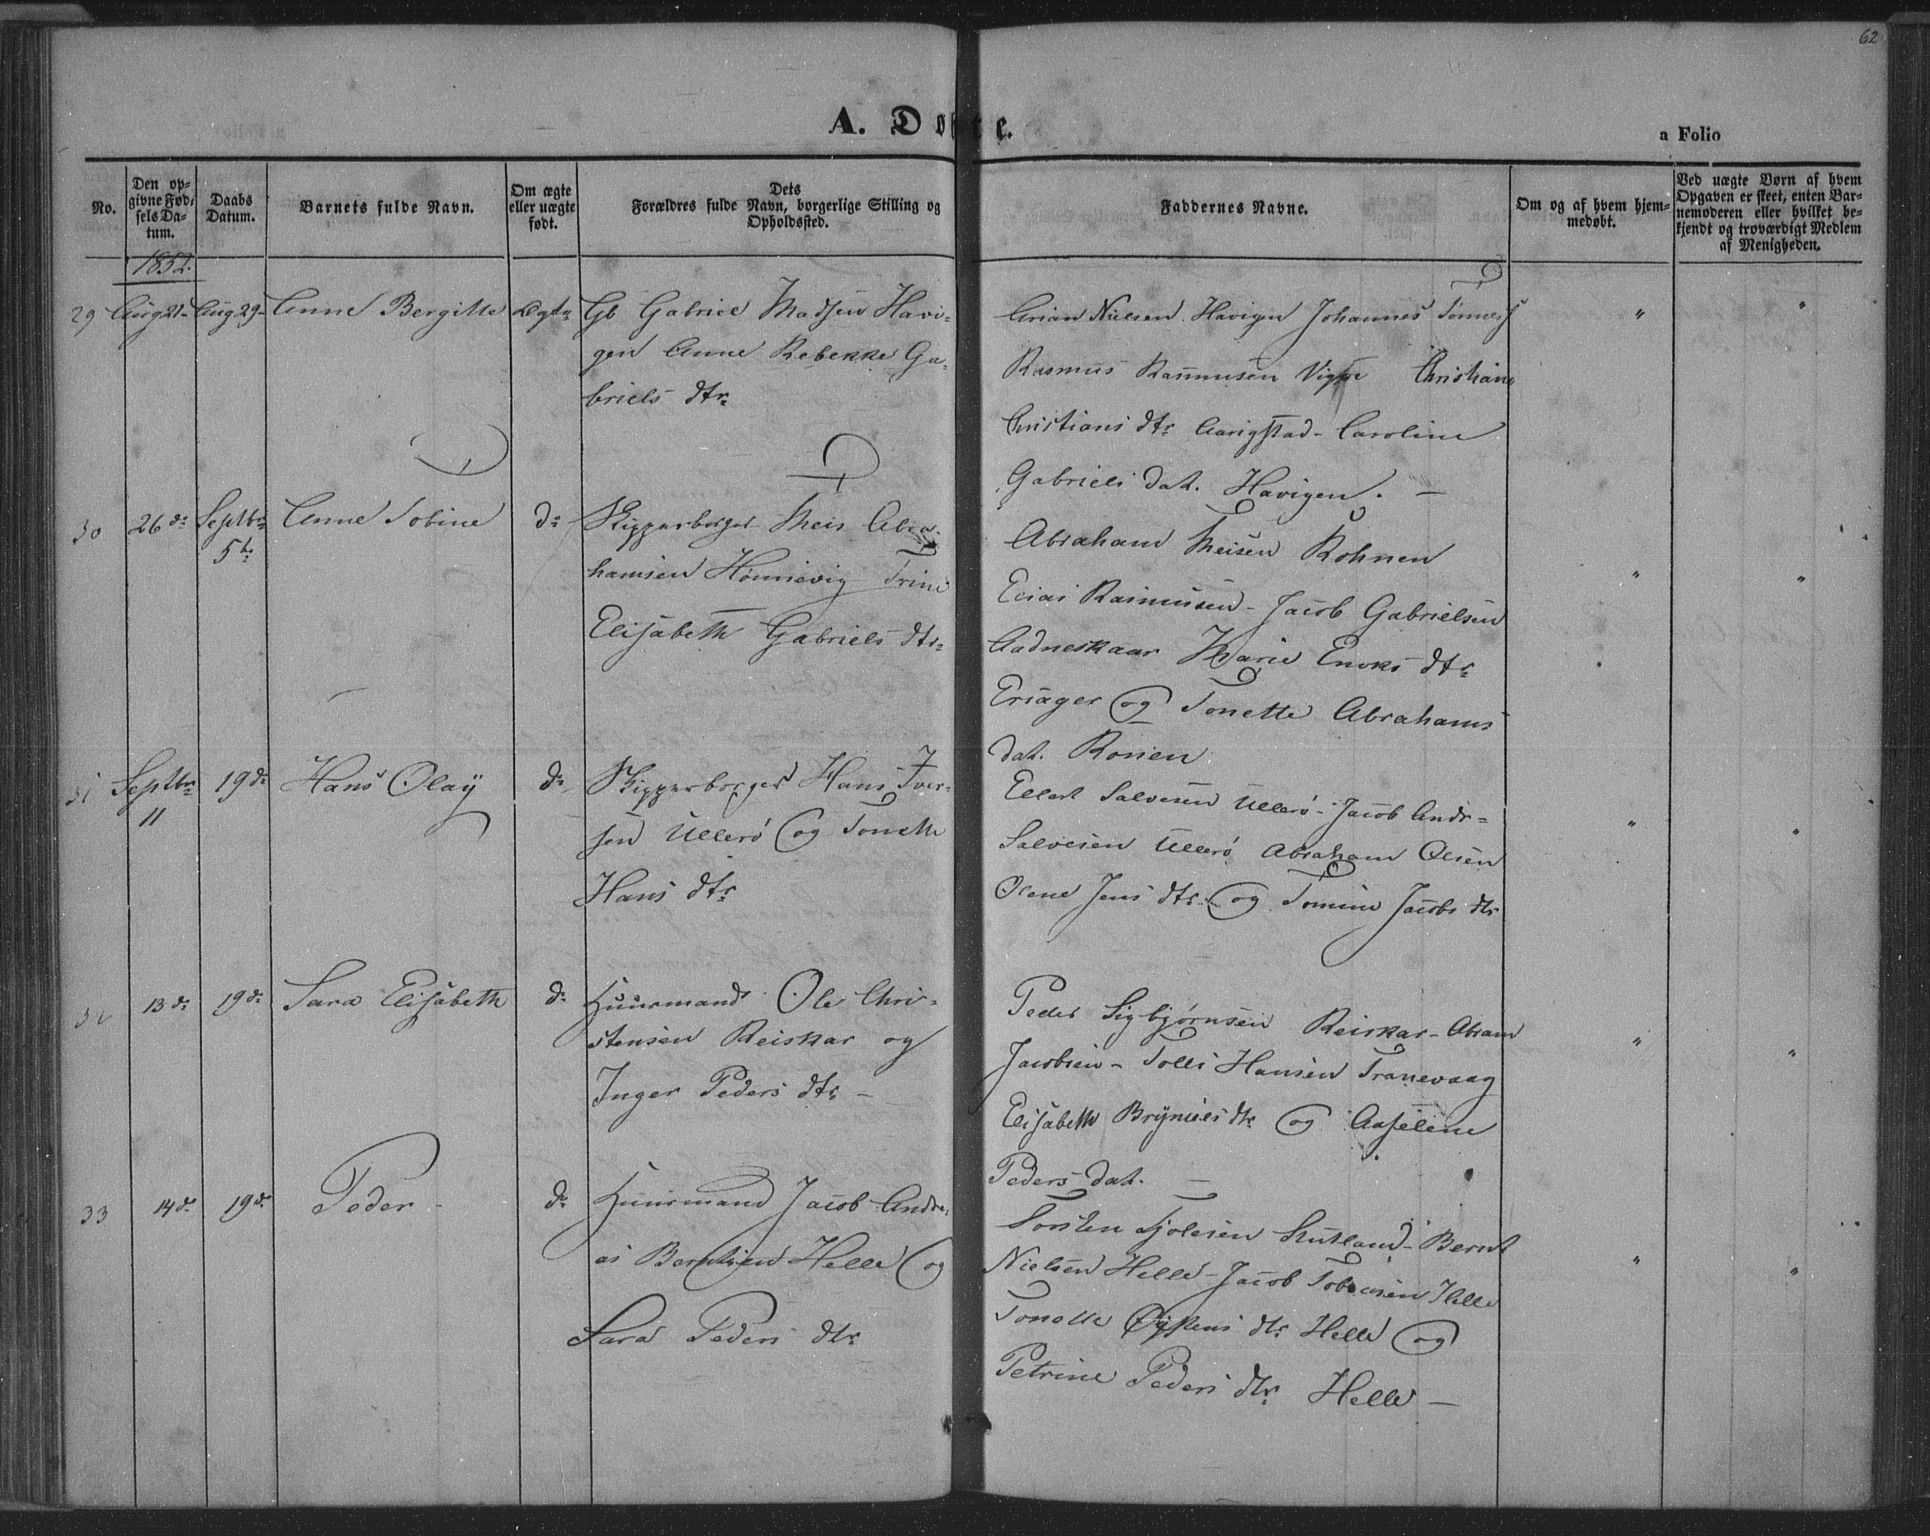 62
A. Døbte.
a Folio
No.
Den op-
givne Fød-
sels Da-
tum.
Daabs
Datum.
Barnets fulde Navn.
Om ægte
eller uægte
født.
Dets
Forældres fulde Navn, borgerlige Stilling og
Opholdssted.
Faddernes Navne.
Om og af hvem hjem-
medøbt.
Ved uægte Børn af hvem
Opgaven er skeet, enten Bar-
nemoderen eller hvilket be-
kjendt og troværdigt Medlem
af Menigheden.
1852.
29 Aug 21- Aug 29- Anne Bergitte Ægte
Gb Gabriel Madsen Havi-
gen Anne Rebekke Ga-
briels dtr
Arian Nielsen Havigen Johannes Tønnes
Rasmus Rasmusen Christiane
Christians dtr Aarigstad - Caroline
Gabriels dat. Havigen. -
" "
30 26 d: Septbr
5te
Anne Tobine d:
Skipperborger Theis Abra-
hamsen Hønnevig Trine
Elisabeth Gabriels dtr
Abraham Theisen Rohnen
Elias Rasmusen - Jacob Gabrielsen
Aadneskaar Marie Enoks dtr
Eriager og Tonette Abrahams
dat. Ronen
" "
31 Septbr
11
19 d: Hans Olay d:
Skipperborger Hans Iver-
sen Ullerø og Tonette
Hans dtr
Ellert Salvesen Ullerø - Jacob Andr=
Salvesen Ullerø Abraham Olsen
Olene Jens dtr og Tomine Jacobs dtr
" "
32 13 d: 19 d: Sara Elisabeth d:
Huusmand Ole Chri-
stensen Reiskar og
Inger Peders dtr -
Peder Sigbjørnsen Reiskar - Abram
Jacobsen - Tolli Hansen Tranevaag
Elisabeth Brÿniels dtr og Aaselene
Peders dat. -
" "
33 14 d: 19 d: Peder - d:
Huusmand Jacob Andre-
as Berntsen Helle og
Sara Peders dtr
Torsten Tjølesen Stutland - Bernt
Nielsen Helle - Jacob Tobiasen Helle
Tonette Øÿstens dtr Helle og
Petrine Peders dtr Helle -
" "